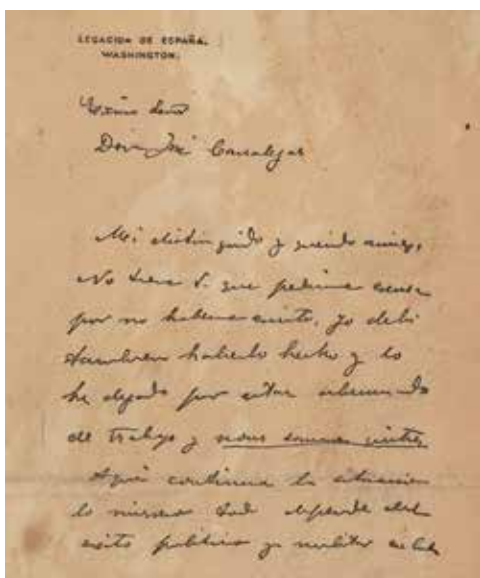 LEGACION DE ESPAÑA.
WASHINGTON.
Excmo Señor
Don José Canalejas
Mi distinguido y querido amigo,
No tiene V. que pedirme excusa
por no haberme escrito, yo debí
tambien haberlo hecho y lo
he dejado por estar abrumado
de trabajo y nous sommes quittes
Aquí continua la situacion
lo mismo Todo depende del
exito politico y militar en Cuba